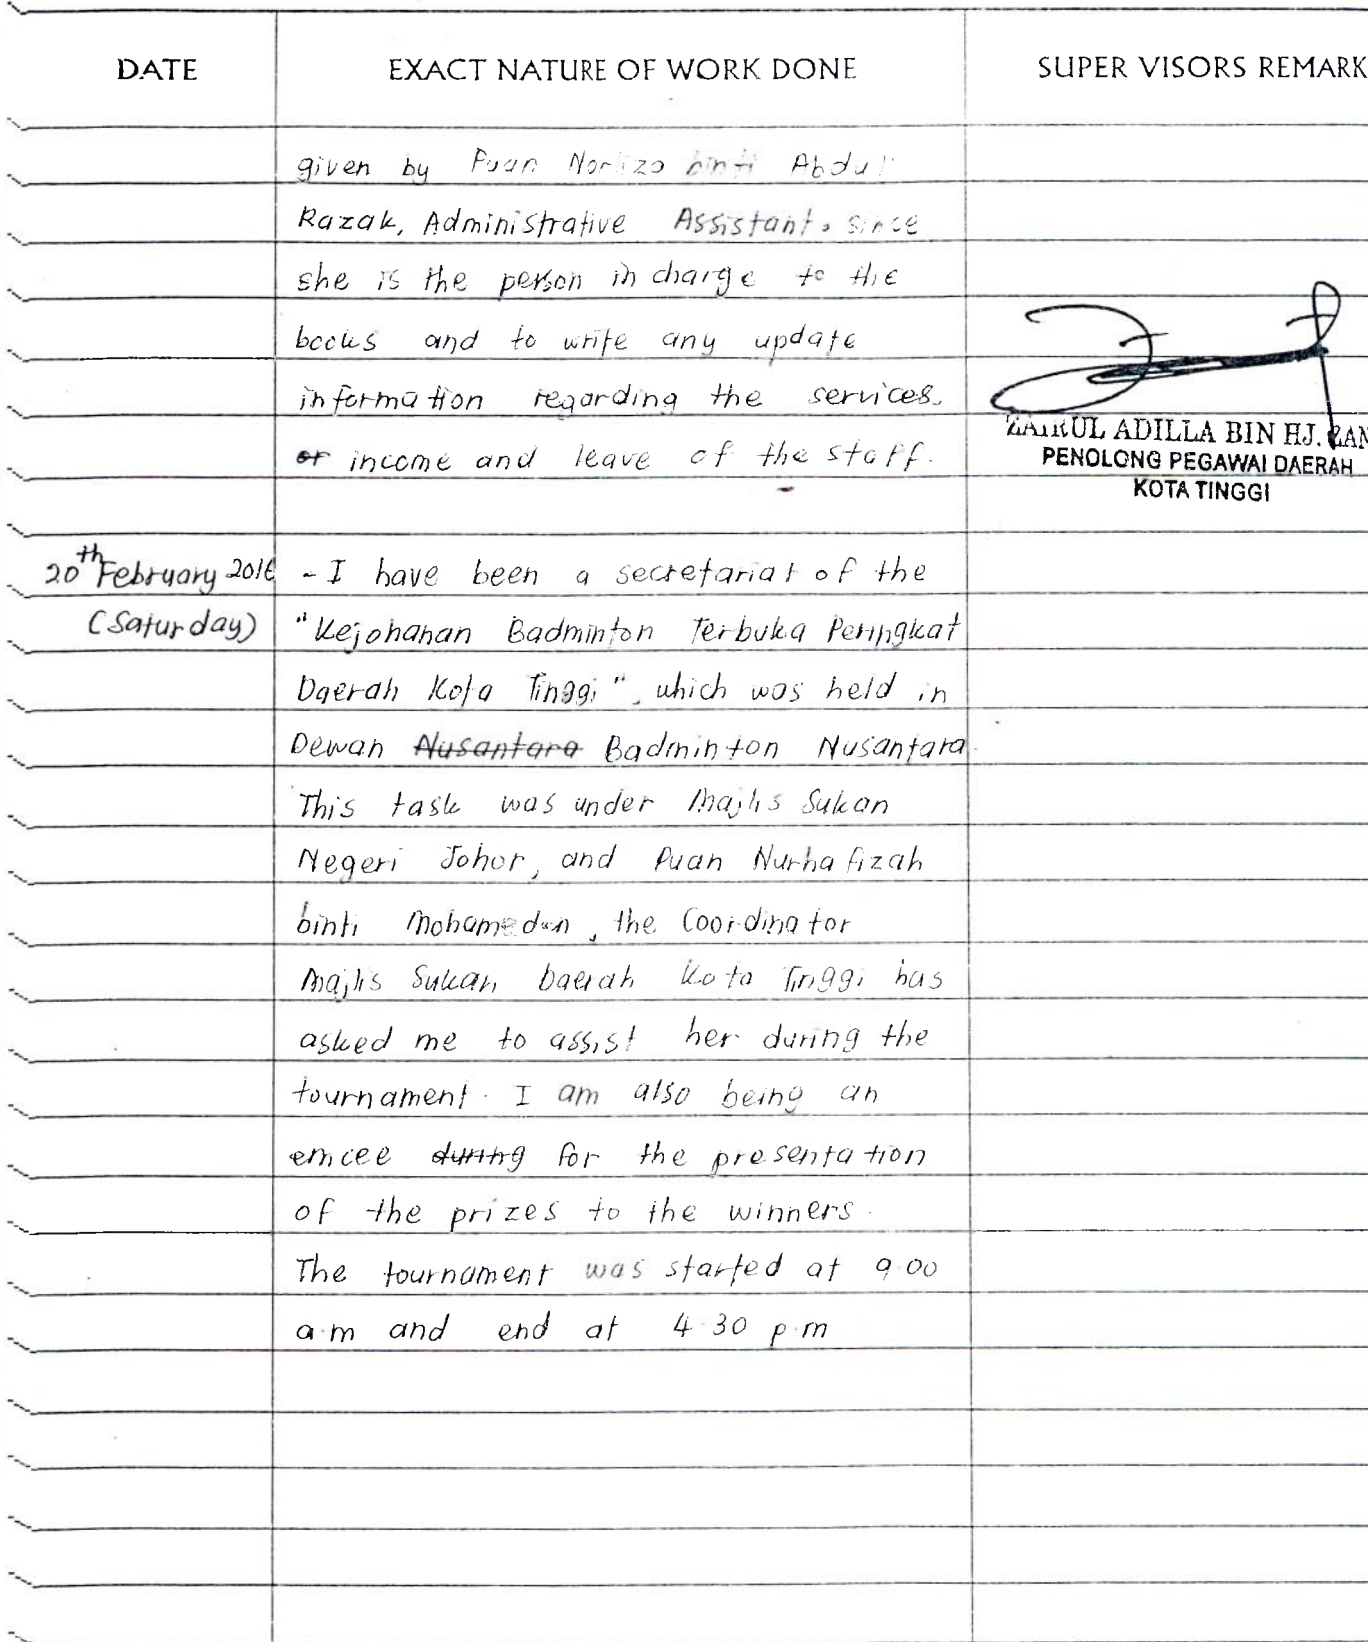 DATE EXACT NATURE OF WORK DONE SUPER VISORS REMARK
given by Puan Norliza binti Abdul
Razak, Administrative Assistant, since
she is the person in charge to the
books and to write any update
information regarding the services,
or income and leave of the staff.
ZAIRUL ADILLA BIN HJ.
PENOLONG PEGAWAI DAERAH
KOTA TINGGI
20th February 2016 - I have been a secretariat of the
(Saturday) "Kejohanan Badminton Terbuka Peringkat
Daerah Kota Tinggi", which was held in
Dewan Nusantara Badminton Nusantara.
This task was under Majlis Sukan
Negeri Johor, and Puan Nurhafizah
binti Mohamedan, the Coordinator
Majlis Sukan Daerah Kota Tinggi has
asked me to assist her during the
tournament. I am also being an
emcee during for the presentation
of the prizes to the winners.
The tournament was started at 9.00
a.m and end at 4.30 p.m